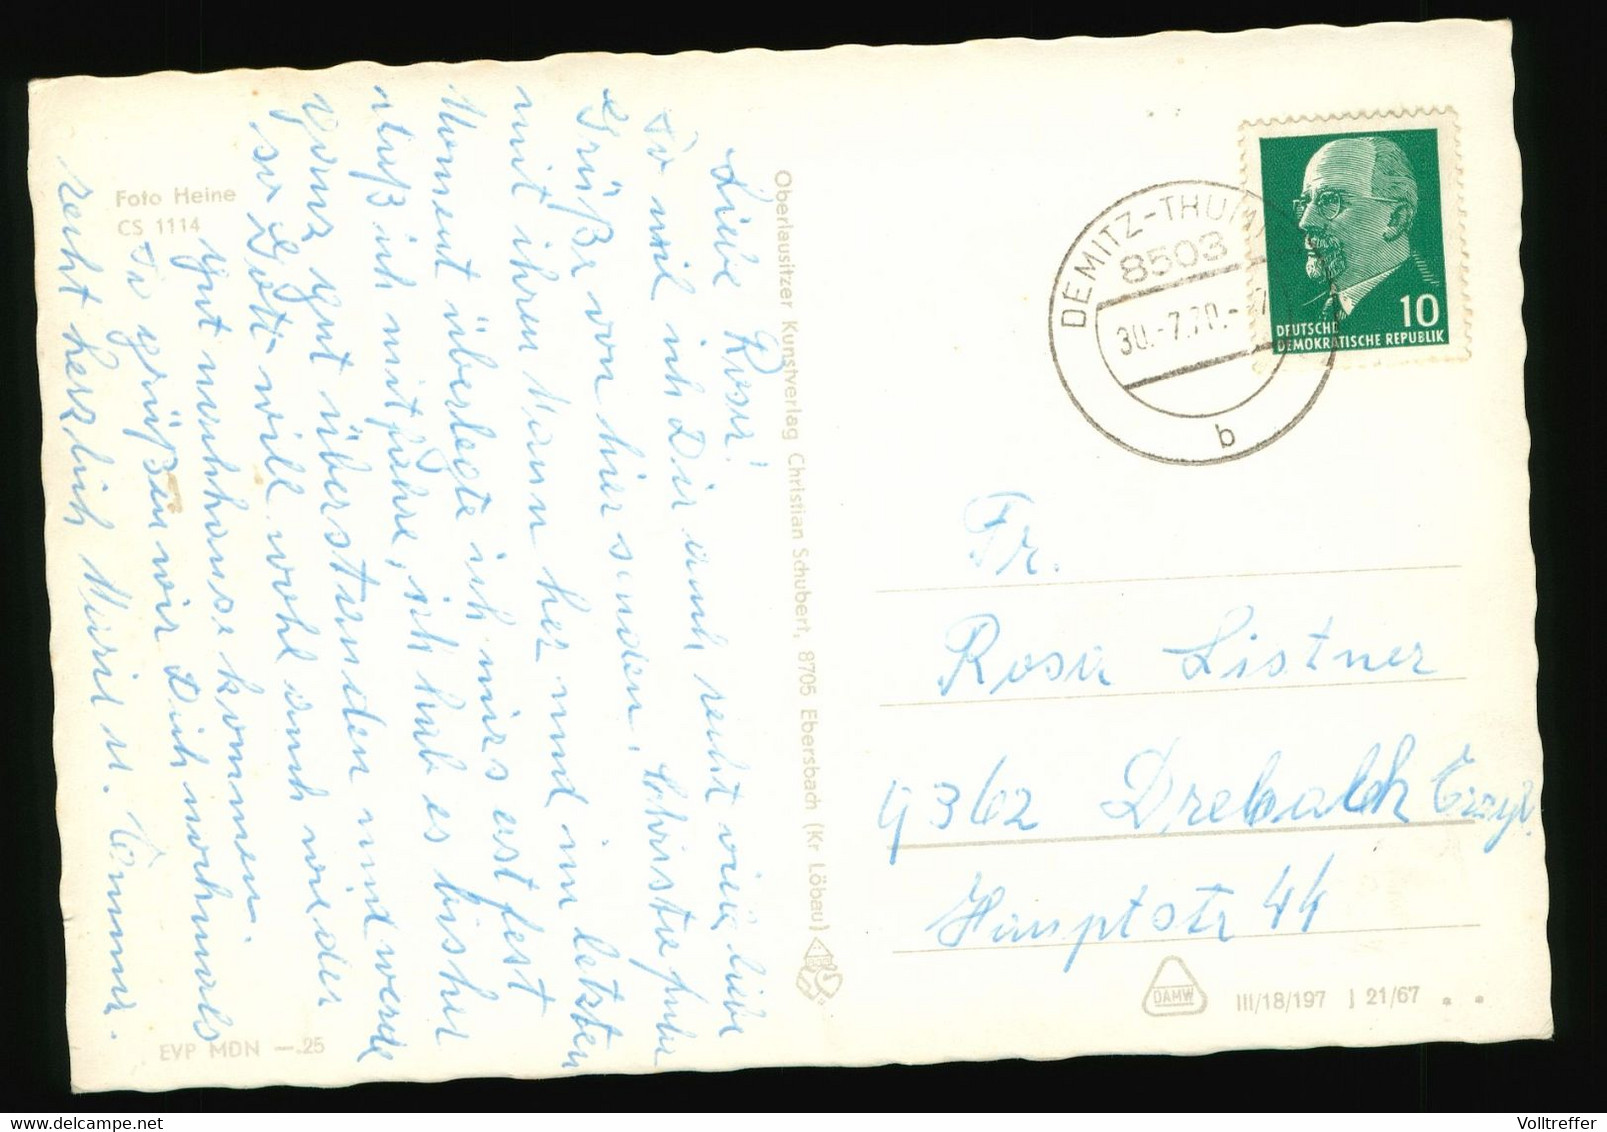 Foto Heine
CS 1114
Liebe Rosa!
So will ich Dir auch recht viele liebe
Grüße von hier senden. Christa fuhr
mit ihrem Mann her und im letzten
Moment überlegte ich mirs erst fest
daß ich mitfahre, ich hab es bisher
ganz gut überstanden und werde
so Gott will wohl auch wieder
gut nachhause kommen.
So grüßen wir Dich nochmals
recht herzlich Marie u. Emma.
EVP MDN —.25
Oberlausitzer Kunstverlag Christian Schubert, 8705 Ebersbach (Kr Löbau)
DEMITZ-THUM
8503
30.-7.70.-
b
10
DEUTSCHE
DEMOKRATISCHE REPUBLIK
Fr.
Rosa Listner
9362 Drebach Erzgb.
Hauptstr 44
DAMW
III/18/197 J 21/67
www.delcampe.net
Volltreffer